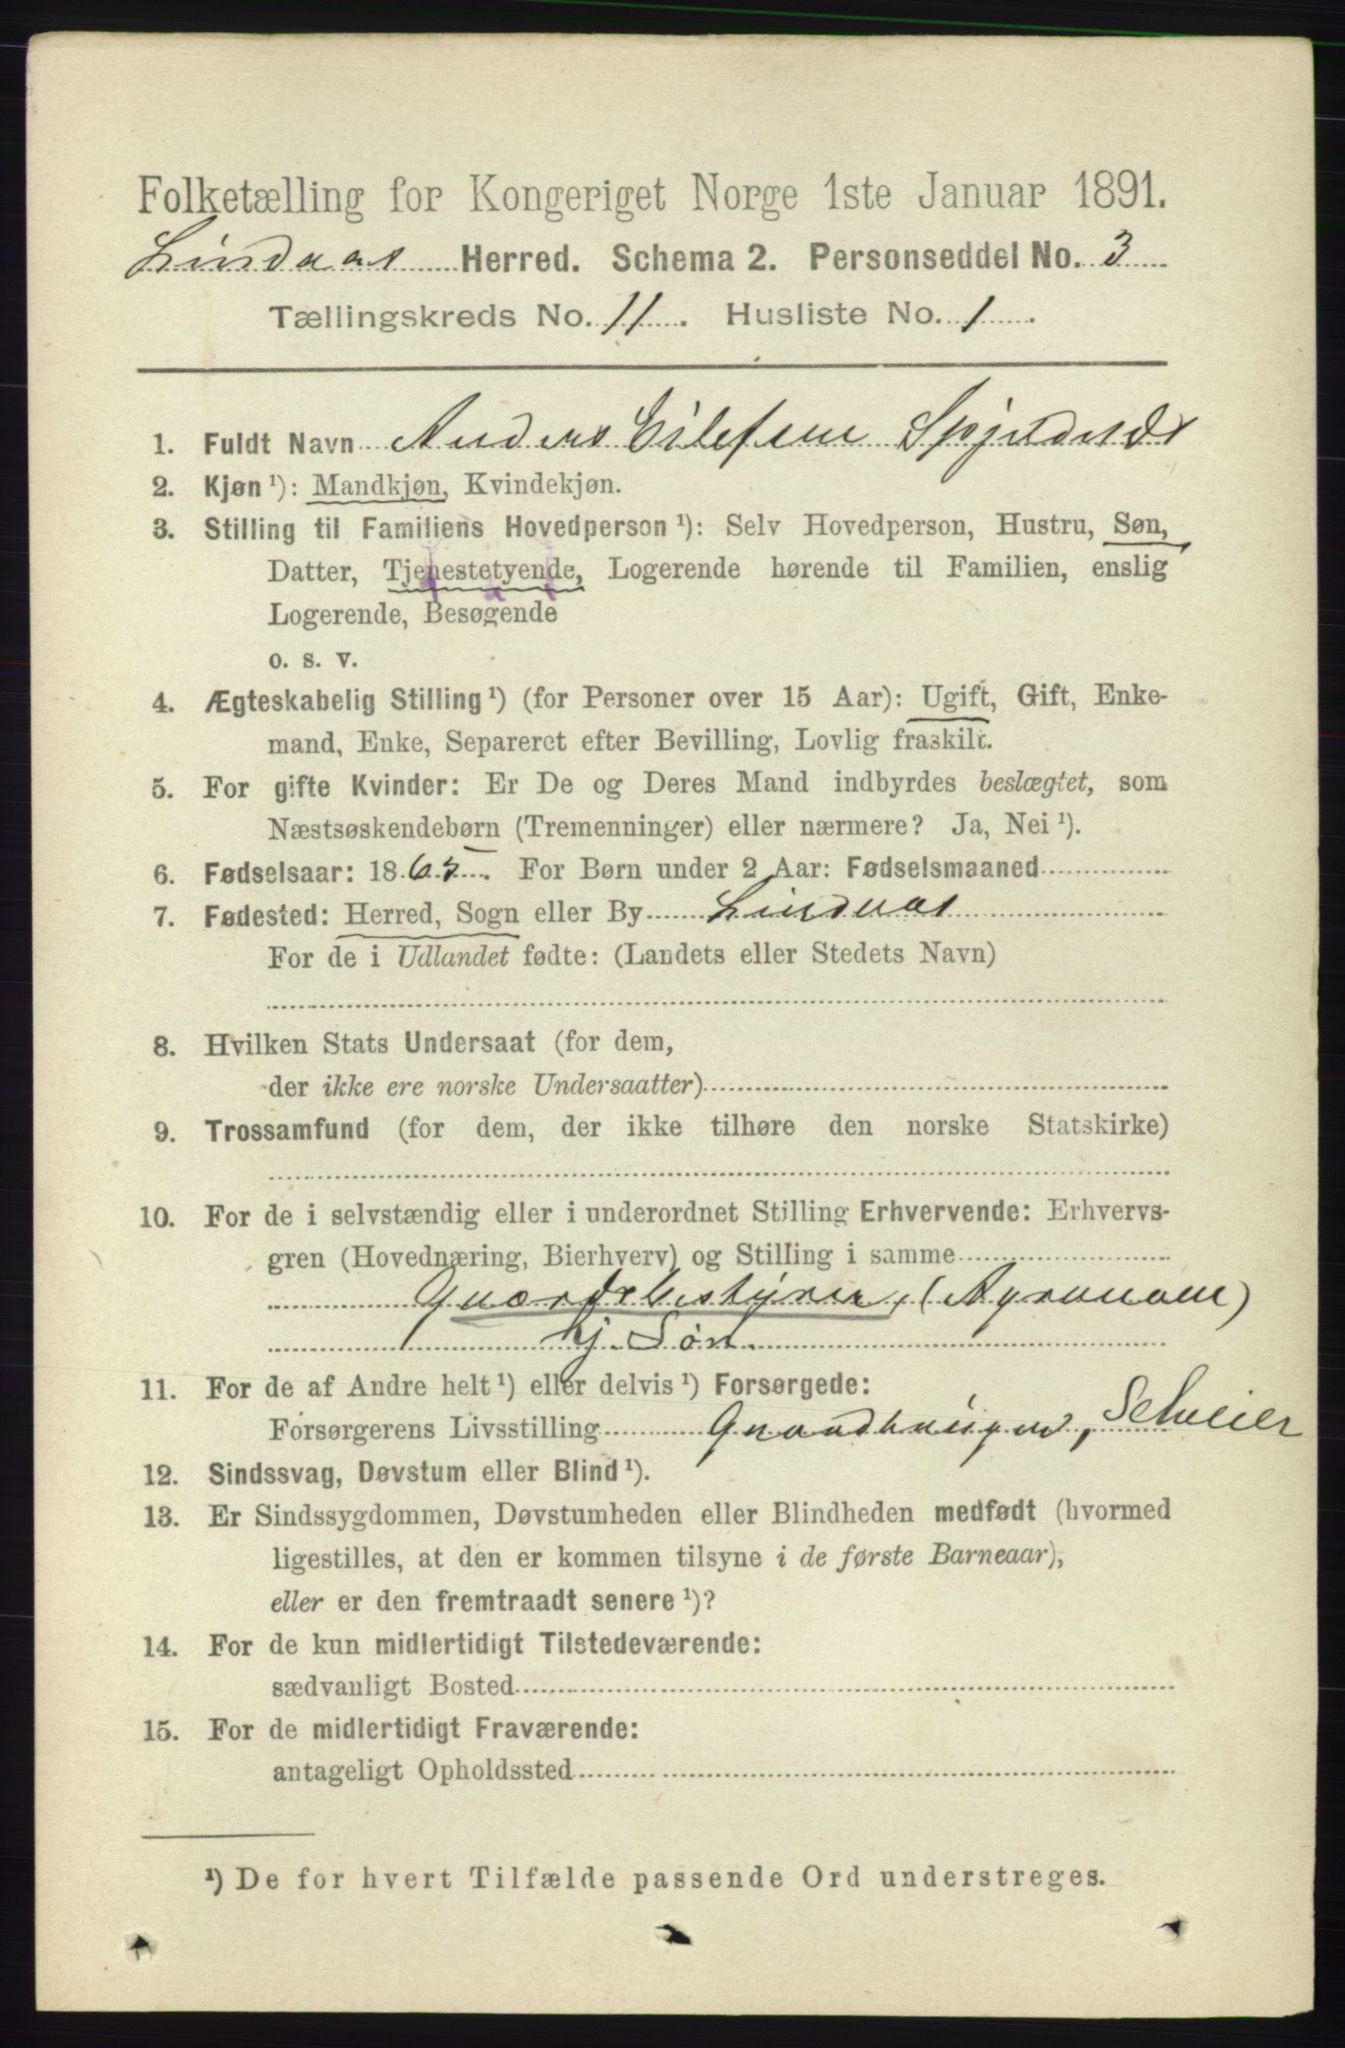 Folketælling for Kongeriget Norge 1ste Januar 1891.
Lindaas Herred. Schema 2. Personseddel No. 3
Tællingskreds No. 11. Husliste No. 1.
1. Fuldt Navn Anders Eilefsen
2. Kjøn ¹): Mandkjøn, Kvindekjøn.
3. Stilling til Familiens Hovedperson ¹): Selv Hovedperson, Hustru, Søn,
Datter, Tjenestetyende, Logerende hørende til Familien, enslig
Logerende, Besøgende
o. s. v.
4. Ægteskabelig Stilling ¹) (for Personer over 15 Aar): Ugift, Gift, Enke-
mand, Enke, Separeret efter Bevilling, Lovlig fraskilt.
5. For gifte Kvinder: Er De og Deres Mand indbyrdes beslægtet, som
Næstsøskendebørn (Tremenninger) eller nærmere? Ja, Nei ¹).
6. Fødselsaar: 1865. For Børn under 2 Aar: Fødselsmaaned
7. Fødested: Herred, Sogn eller By Lindaas
For de i Udlandet fødte: (Landets eller Stedets Navn)
8. Hvilken Stats Undersaat (for dem,
der ikke ere norske Undersaatter)
9. Trossamfund (for dem, der ikke tilhøre den norske Statskirke)
10. For de i selvstændig eller i underordnet Stilling Erhvervende: Erhvervs-
gren (Hovednæring, Bierhverv) og Stilling i samme
Gaardsbestyrer, (Agronom)
hj. Søn.
11. For de af Andre helt ¹) eller delvis ¹) Forsørgede:
Forsørgerens Livsstilling Gaardbruger, Selveier
12. Sindssvag, Døvstum eller Blind ¹).
13. Er Sindssygdommen, Døvstumheden eller Blindheden medfødt (hvormed
ligestilles, at den er kommen tilsyne i de første Barneaar),
eller er den fremtraadt senere ¹)?
14. For de kun midlertidigt Tilstedeværende:
sædvanligt Bosted
15. For de midlertidigt Fraværende:
antageligt Opholdssted
¹) De for hvert Tilfælde passende Ord understreges.